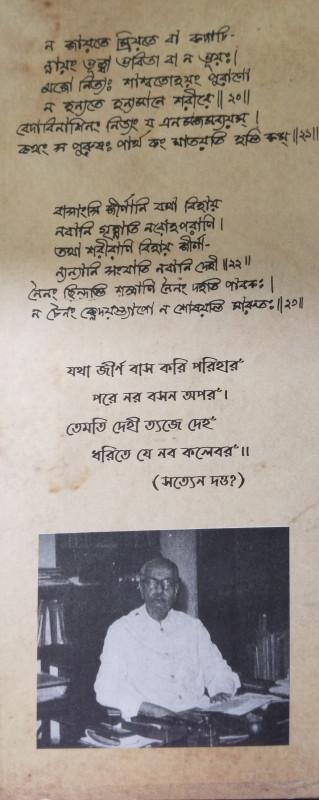 ন জায়তে ম্রিয়তে বা কদাচি-
ন্নায়ং ভূত্বা ভবিতা বা ন ভূয়ঃ।
অজো নিত্যঃ শাশ্বতোহয়ং পুরাণো
ন হন্যতে হন্যমানে শরীরে॥২০॥
বেদাবিনাশিনং নিত্যং য এনমজমব্যয়ম্।
কথং স পুরুষঃ পার্থ কং ঘাতয়তি হন্তি কম্॥২১॥
বাসাংসি জীর্ণানি যথা বিহায়
নবানি গৃহ্ণাতি নরোহপরাণি।
তথা শরীরাণি বিহায় জীর্ণা-
ন্যন্যানি সংযাতি নবানি দেহী॥২২॥
নৈনং ছিন্দন্তি শস্ত্রাণি নৈনং দহতি পাবকঃ।
ন চৈনং ক্লেদয়ন্ত্যাপো ন শোষয়তি মারুতঃ॥২৩॥
যথা জীর্ণ বাস করি পরিহার
পরে নর বসন অপর।
তেমতি দেহী ত্যজে দেহ
ধরিতে যে নব কলেবর॥
(সত্যেন দত্ত?)